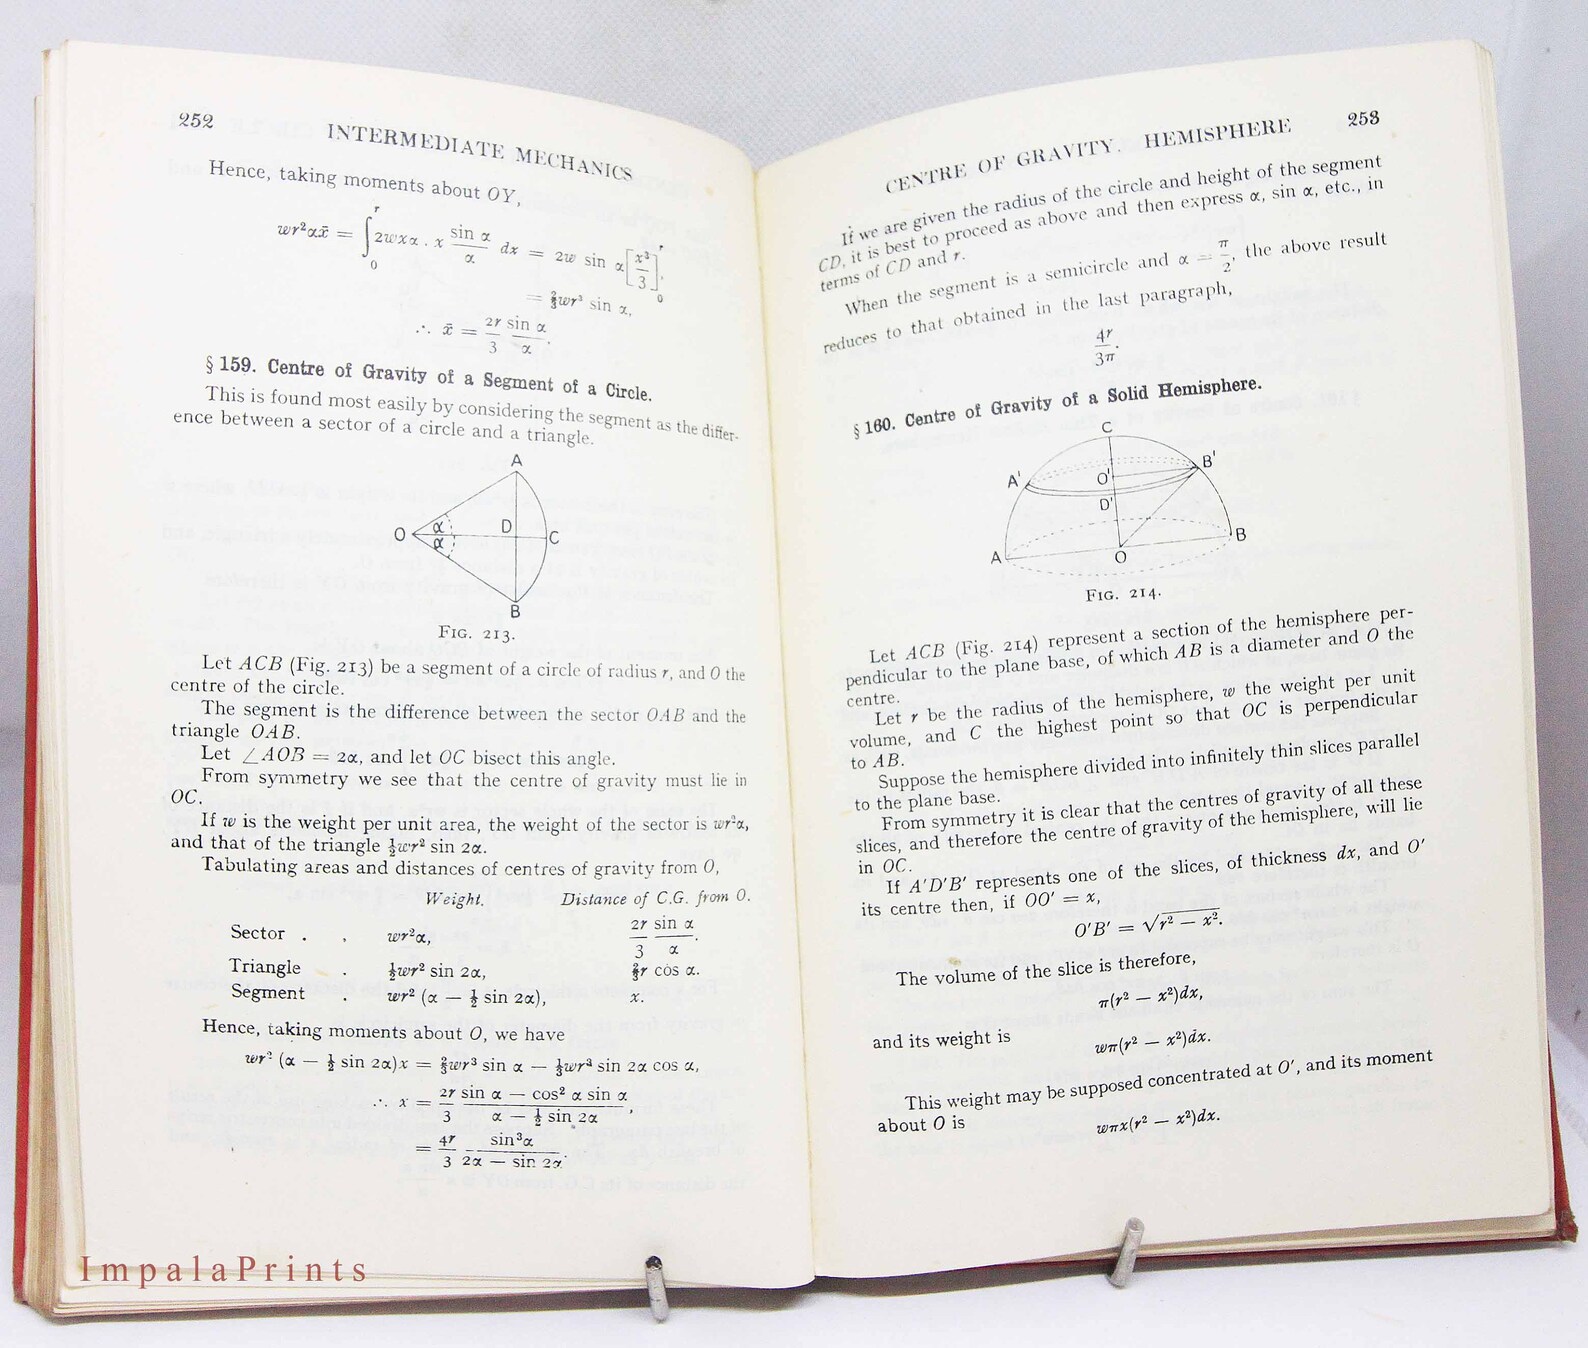 252
INTERMEDIATE MECHANICS
Hence, taking moments about OY,
wr²αx̄ = ∫₀ʳ 2wxα . x (sin α)/α dx = 2w sin α [x³/3]₀ʳ,
= ⅔wr³ sin α,
∴ x̄ = 2r/3 (sin α)/α.
§ 159. Centre of Gravity of a Segment of a Circle.
This is found most easily by considering the segment as the differ-
ence between a sector of a circle and a triangle.
A
O α α D C
B
FIG. 213.
Let ACB (Fig. 213) be a segment of a circle of radius r, and O the
centre of the circle.
The segment is the difference between the sector OAB and the
triangle OAB.
Let ∠AOB = 2α, and let OC bisect this angle.
From symmetry we see that the centre of gravity must lie in
OC.
If w is the weight per unit area, the weight of the sector is wr²α,
and that of the triangle ½wr² sin 2α.
Tabulating areas and distances of centres of gravity from O,
Weight. Distance of C.G. from O.
Sector . . wr²α, 2r/3 (sin α)/α.
Triangle . ½wr² sin 2α, ⅔r cos α.
Segment . wr² (α − ½ sin 2α), x.
Hence, taking moments about O, we have
wr² (α − ½ sin 2α)x = ⅔wr³ sin α − ⅓wr³ sin 2α cos α,
∴ x = 2r/3 (sin α − cos² α sin α)/(α − ½ sin 2α),
= 4r/3 sin³α/(2α − sin 2α).
CENTRE OF GRAVITY. HEMISPHERE
253
If we are given the radius of the circle and height of the segment
CD, it is best to proceed as above and then express α, sin α, etc., in
terms of CD and r.
When the segment is a semicircle and α = π/2, the above result
reduces to that obtained in the last paragraph,
4r/3π.
§ 160. Centre of Gravity of a Solid Hemisphere.
C
A' O' B'
D'
A O B
FIG. 214.
Let ACB (Fig. 214) represent a section of the hemisphere per-
pendicular to the plane base, of which AB is a diameter and O the
centre.
Let r be the radius of the hemisphere, w the weight per unit
volume, and C the highest point so that OC is perpendicular
to AB.
Suppose the hemisphere divided into infinitely thin slices parallel
to the plane base.
From symmetry it is clear that the centres of gravity of all these
slices, and therefore the centre of gravity of the hemisphere, will lie
in OC.
If A'D'B' represents one of the slices, of thickness dx, and O'
its centre then, if OO' = x,
O'B' = √(r² − x²).
The volume of the slice is therefore,
π(r² − x²)dx,
and its weight is
wπ(r² − x²)dx.
This weight may be supposed concentrated at O', and its moment
about O is
wπx(r² − x²)dx.
ImpalaPrints